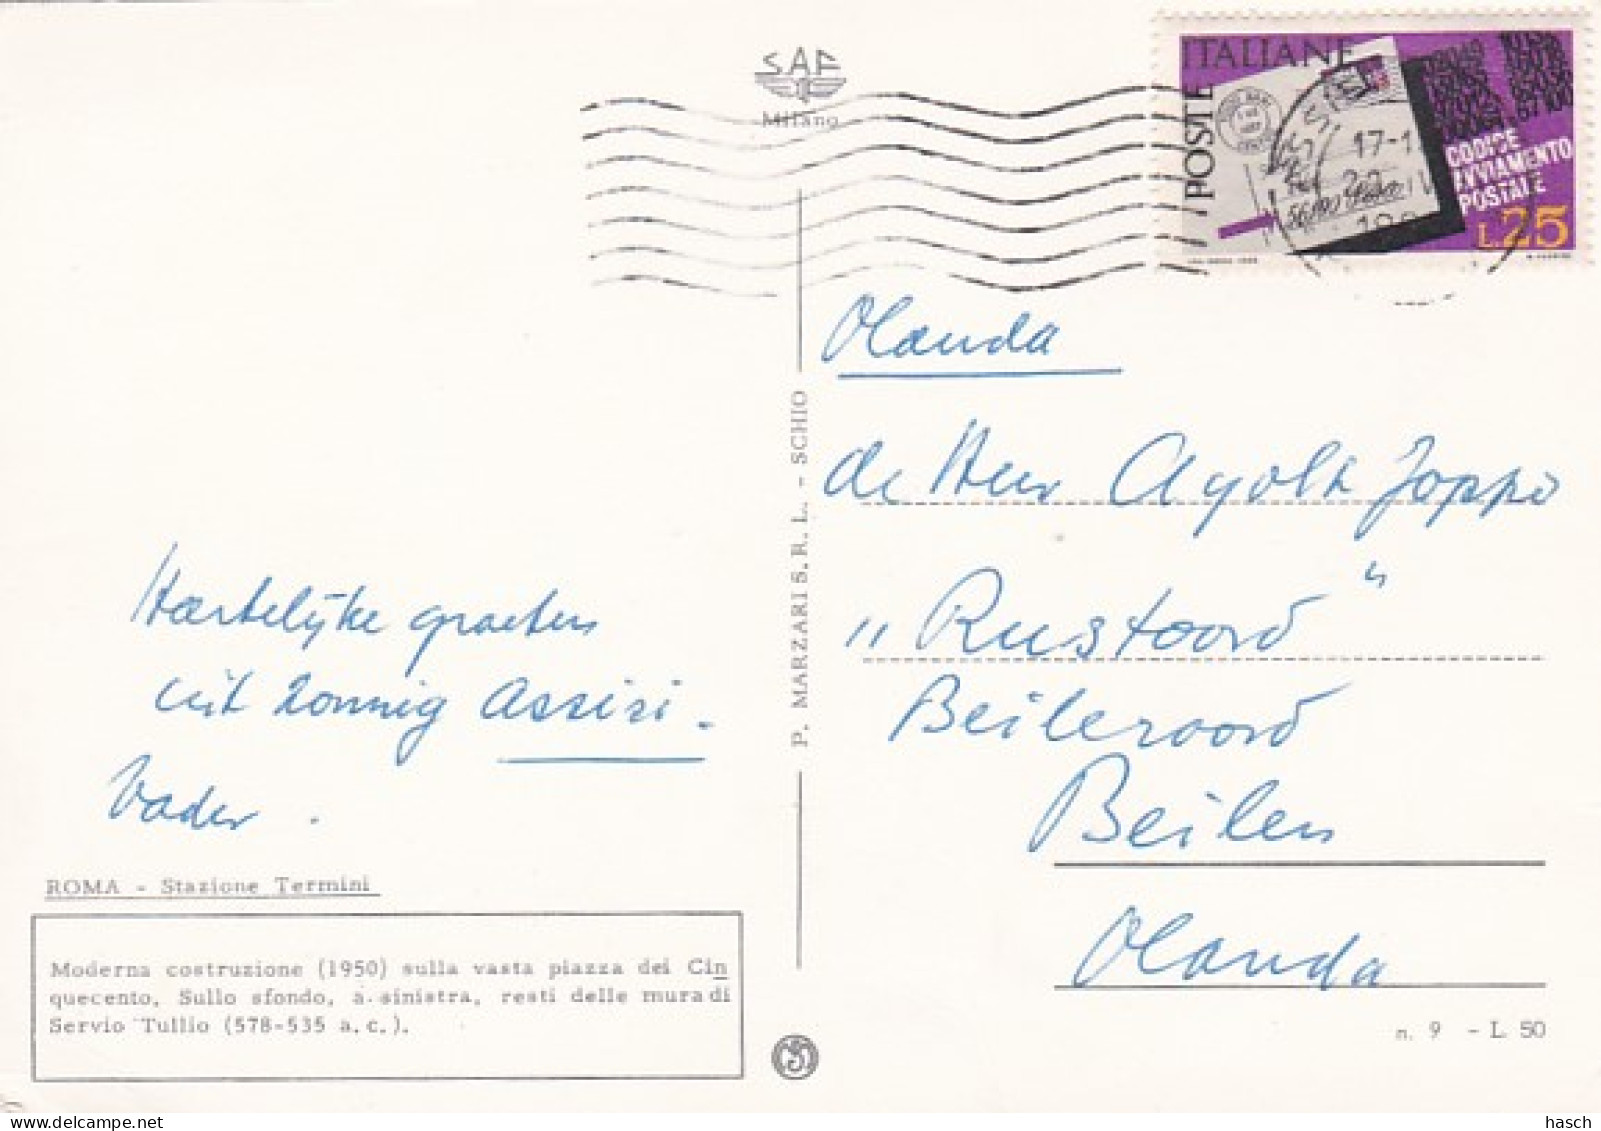 SAF
Milano
POSTE ITALIANE
CODICE
AVVIAMENTO
POSTALE
L.25
17-1
Olanda
de Heer Agolk Joppo
"Rustoord"
Beileroord
Beilen
Olanda
Hartelijke groeten
uit zonnig Assisi.
Vader.
P. MARZARI S.R.L. - SCHIO
ROMA - Stazione Termini
Moderna costruzione (1950) sulla vasta piazza dei Cin
quecento, Sullo sfondo, a sinistra, resti delle mura di
Servio Tullio (578-535 a.c.).
n. 9 - L. 50
hasch